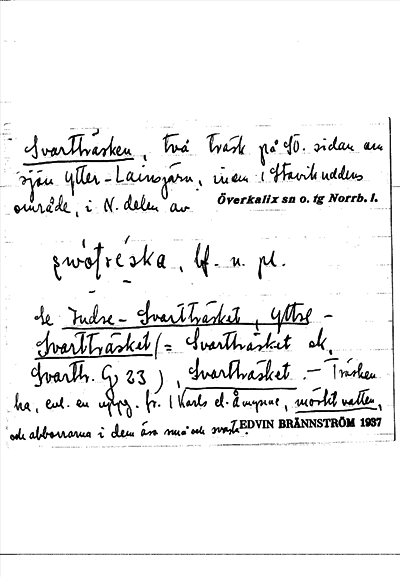 Svartträsken, två träsk på SO. sidan om
sjön Ytter-Lainsjärv, inom
område, i N. delen av Överkalix sn o. tg Norrb. l.
bf. n. pl.
Se Indre-Svartträsket, Yttre-
Svartträsket (= Svartträsket ek.
Svarttr. G 23), Svartträsket. – Träsken
ha, enl. en uppg. fr. Karls el. Åmynne, mörkt vatten,
och abborrarna i dem äro små och svarta.
EDVIN BRÄNNSTRÖM 1937